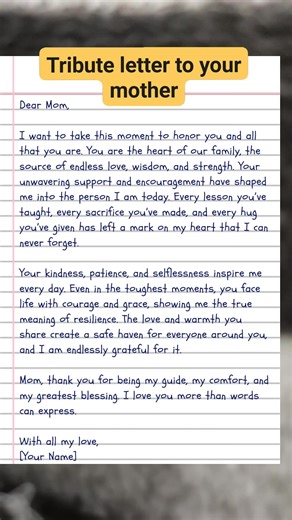 Tribute letter to your
mother
Dear Mom,
I want to take this moment to honor you and all
that you are. You are the heart of our family, the
source of endless love, wisdom, and strength. Your
unwavering support and encouragement have shaped
me into the person I am today. Every lesson you've
taught, every sacrifice you've made, and every hug
you've given has left a mark on my heart that I can
never forget.
Your kindness, patience, and selflessness inspire me
every day. Even in the toughest moments, you face
life with courage and grace, showing me the true
meaning of resilience. The love and warmth you
share create a safe haven for everyone around you,
and I am endlessly grateful for it.
Mom, thank you for being my guide, my comfort, and
my greatest blessing. I love you more than words
can express.
With all my love,
[Your Name]